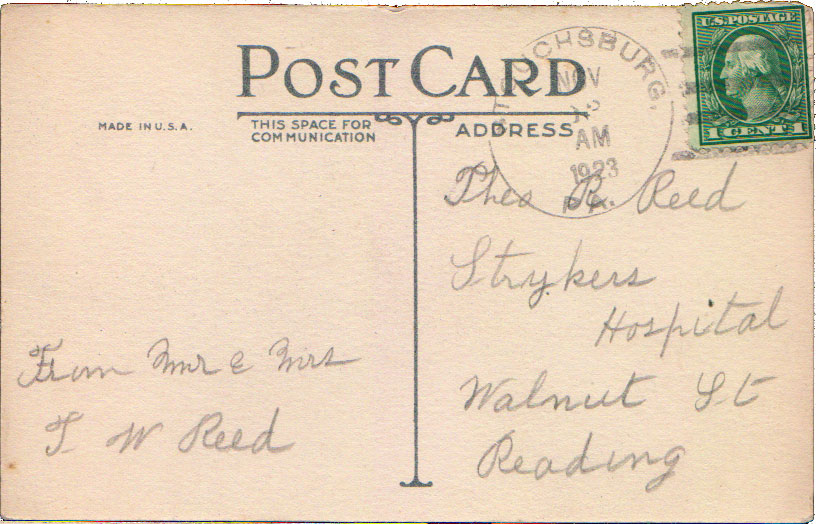 POST CARD
MADE IN U.S.A.
THIS SPACE FOR
COMMUNICATION
ADDRESS
U.S. POSTAGE
1 CENT 1
NOV
AM
1923
PA.
Theo R. Reed
Strykers
Hospital
Walnut St
Reading
From Mr & Mrs
T W Reed